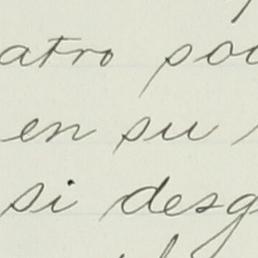 atro poc
en su
si desg